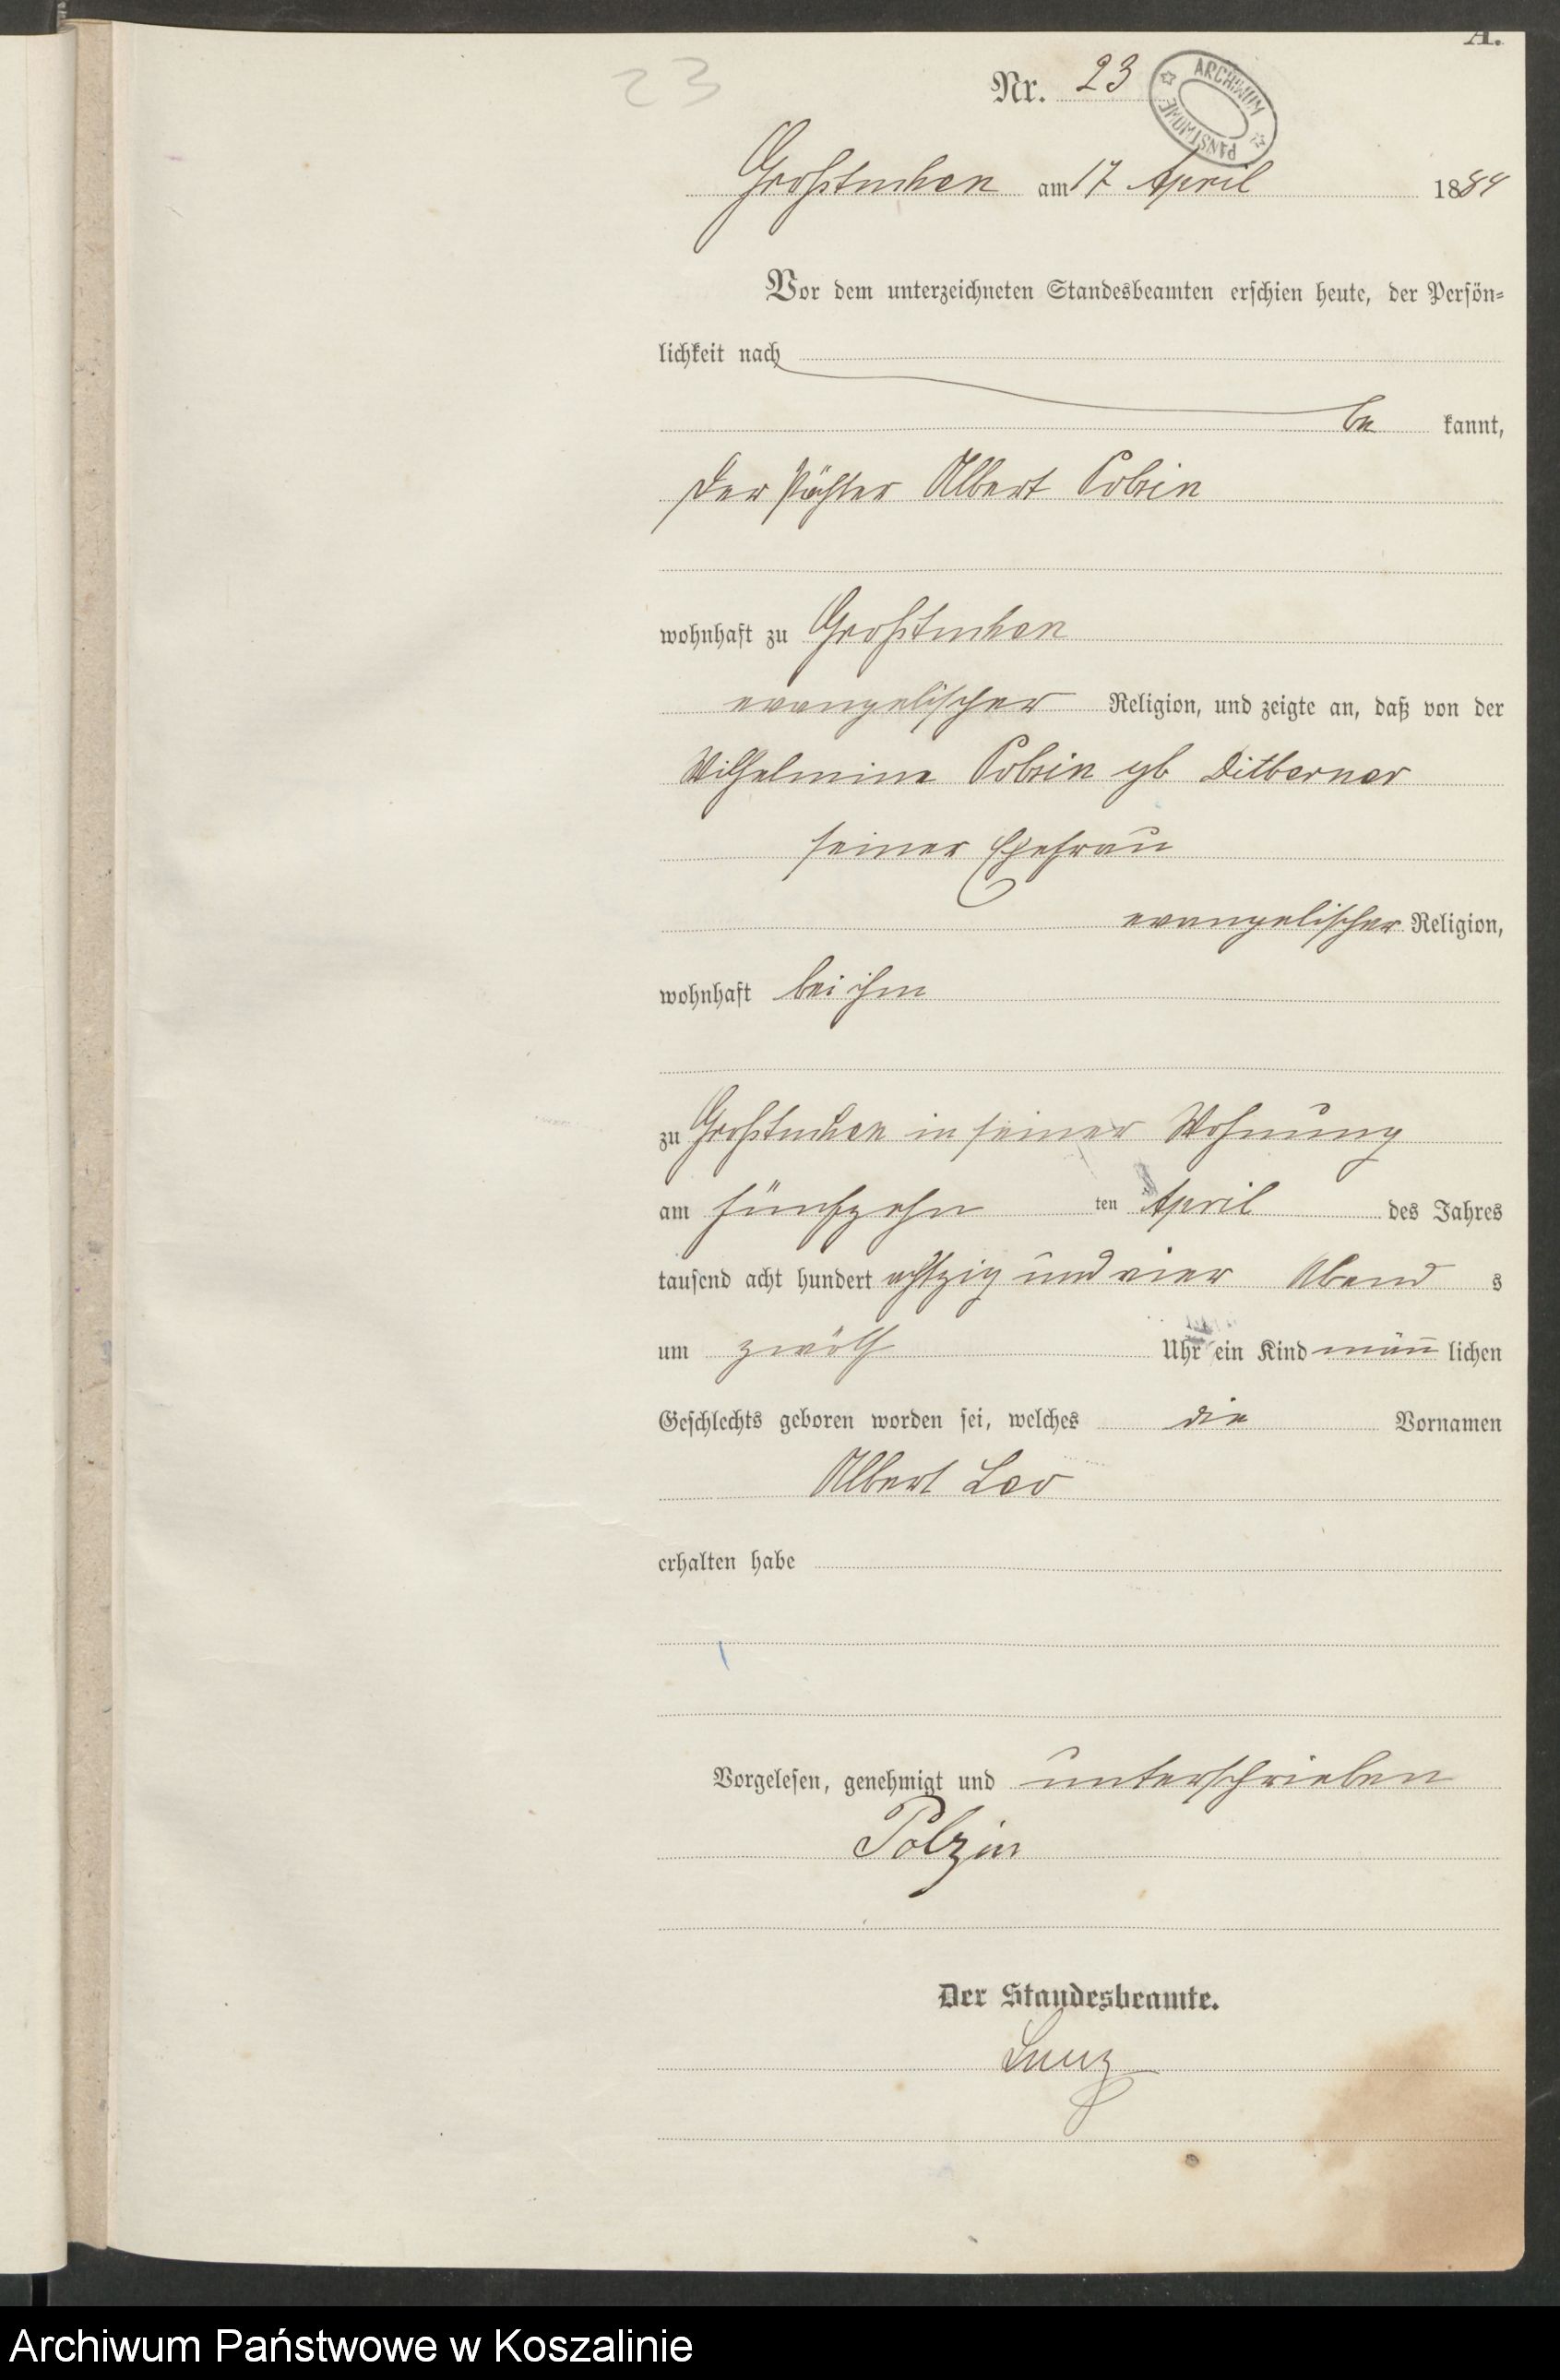 A.
23
Nr. 23
ARCHIWUM PAŃSTWOWE
Großtuchen am 17 April 1884
Vor dem unterzeichneten Standesbeamten erschien heute, der Persön-
lichkeit nach
be kannt,
der Pächter Albert Polzin
wohnhaft zu Großtuchen
evangelischer Religion, und zeigte an, daß von der
Wilhelmine Polzin gb Ditberner
seiner Ehefrau
evangelischer Religion,
wohnhaft bei ihm
zu Großtuchen in seiner Wohnung
am fünfzehn ten April des Jahres
tausend acht hundert achtzig und vier Abend s
um zwölf Uhr ein Kind män̄ lichen
Geschlechts geboren worden sei, welches die Vornamen
Albert Leo
erhalten habe
Vorgelesen, genehmigt und unterschrieben
Polzin
Der Standesbeamte.
Archiwum Państwowe w Koszalinie